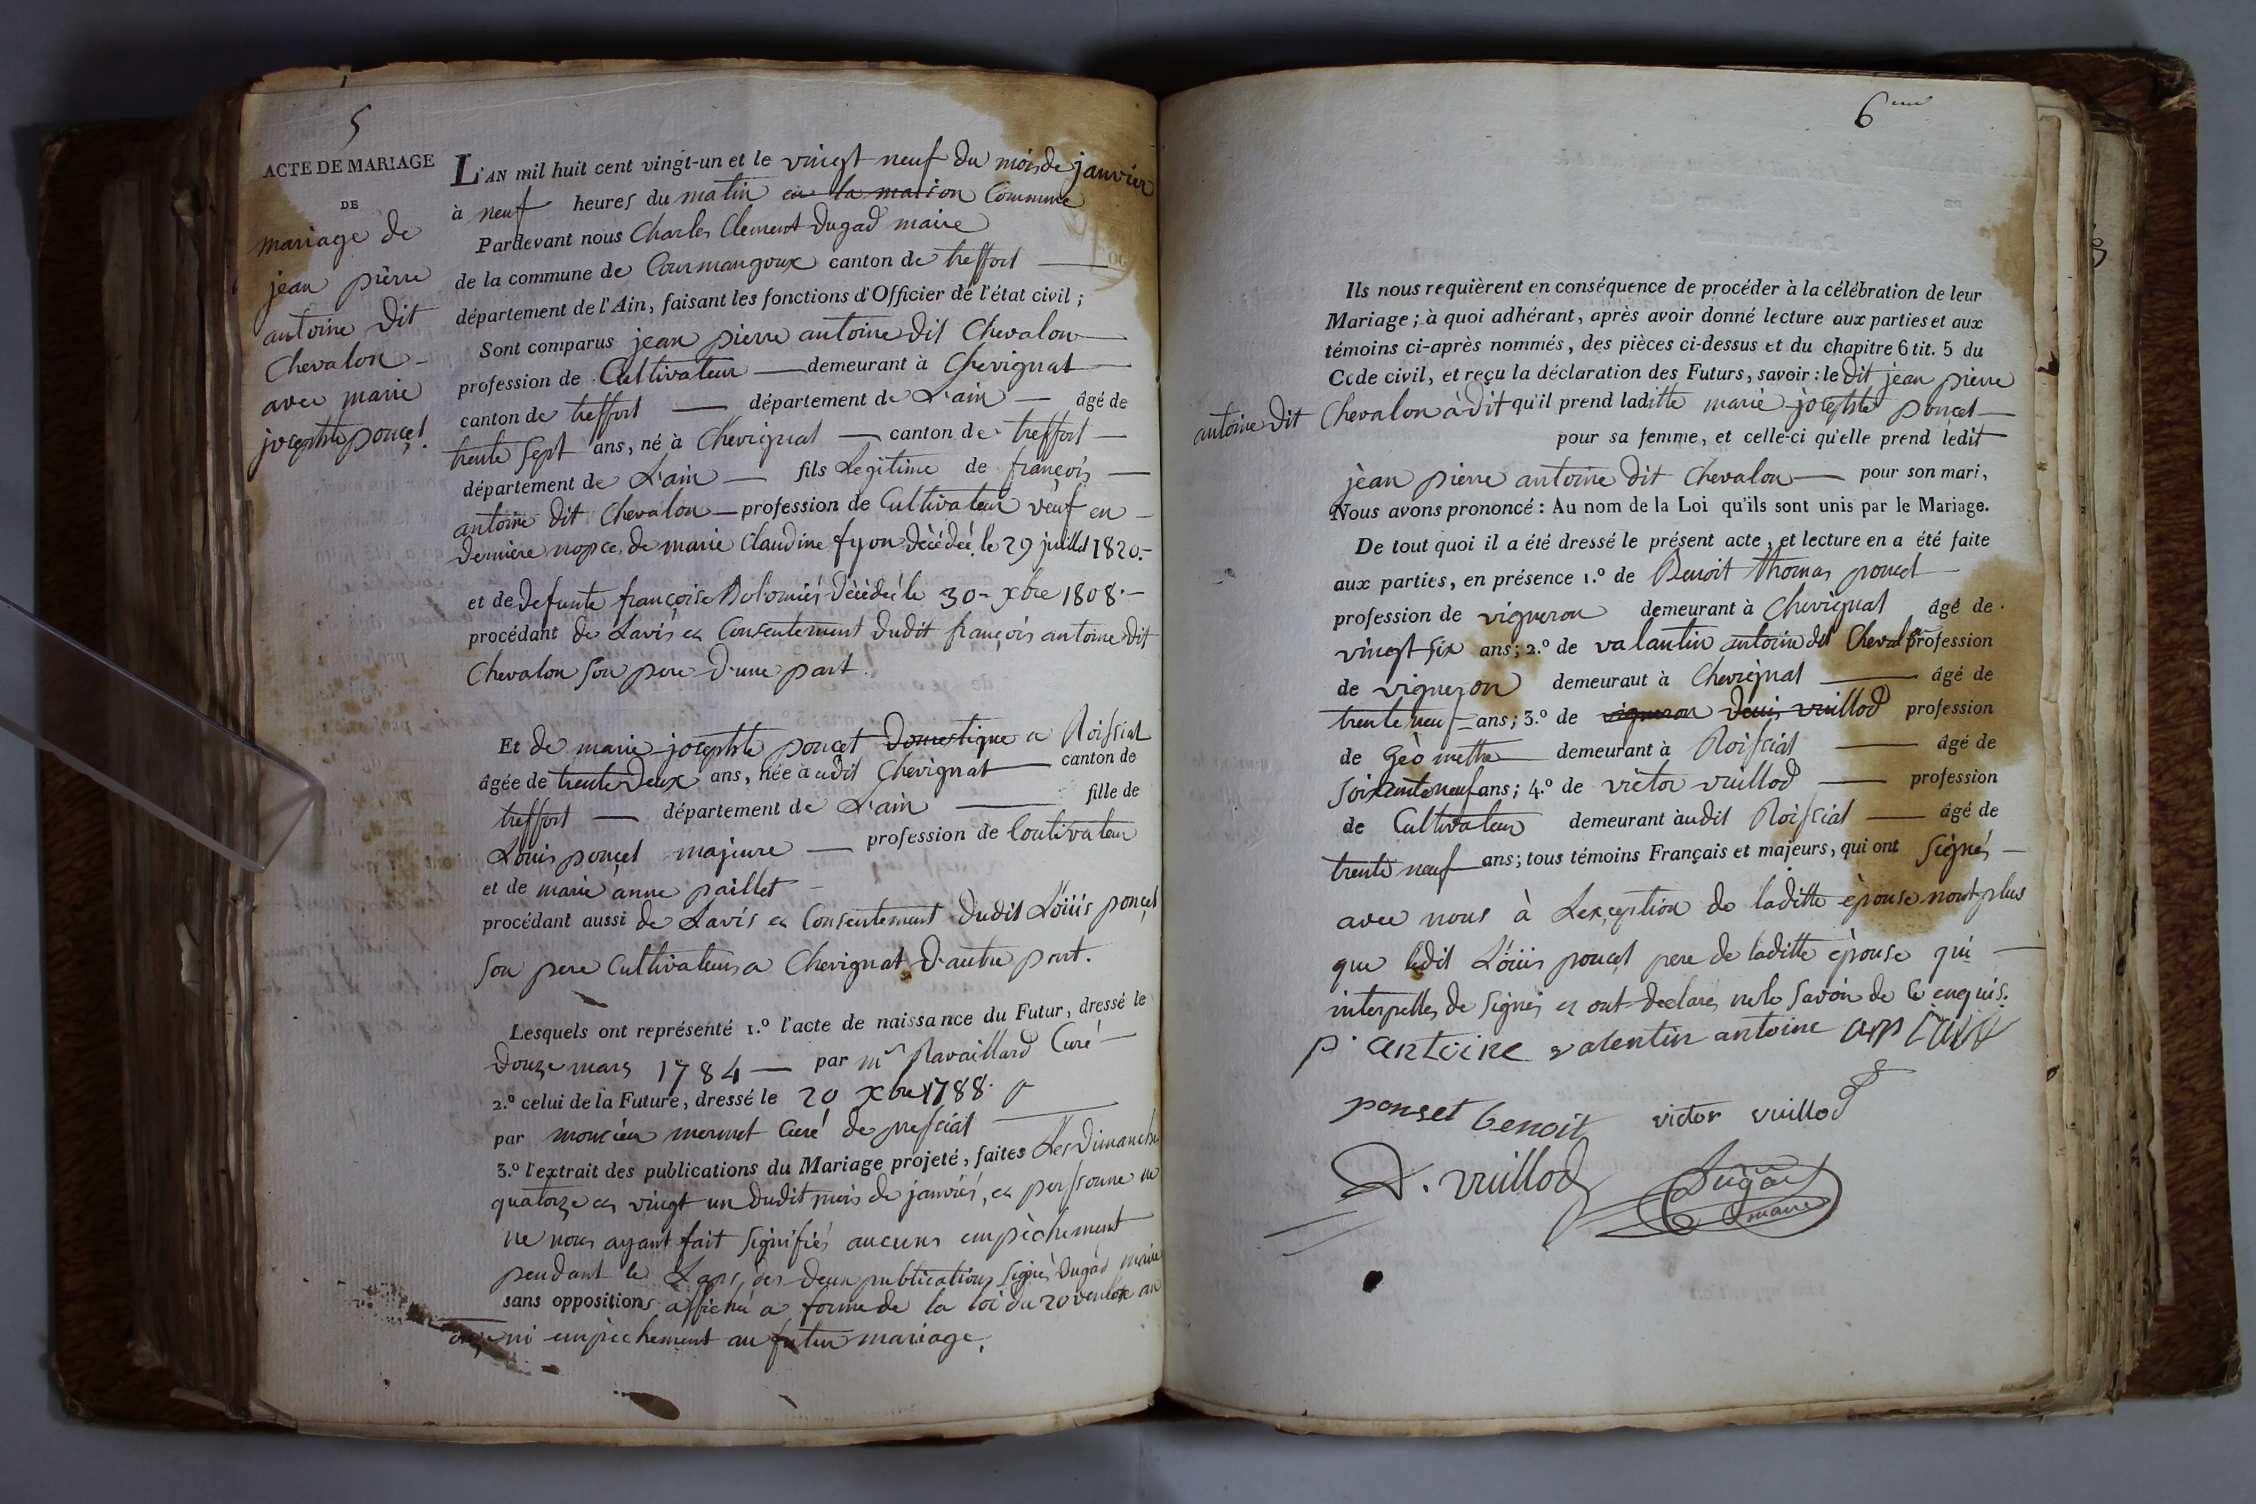 5
ACTE DE MARIAGE
DE
mariage de
jean pierre
antoine dit
Chevalon
avec marie
josephte ponçet.
L'AN mil huit cent vingt-un et le vingt neuf du mois de janvier
à neuf heures du matin en la maison Commune
Pardevant nous Charles Clement Dugad maire
de la commune de Courmangoux canton de treffort
département de l'Ain, faisant les fonctions d'Officier de l'état civil;
Sont comparus jean pierre antoine dit Chevalon
profession de Cultivateur demeurant à Chevignat
canton de treffort département de L'ain âgé de
trente sept ans, né à Chevignat canton de treffort
département de L'ain fils Legitime de françois
antoine dit Chevalon profession de Cultivateur veuf en
derniere nopce de marie Claudine fyon décédée le 29 juillet 1820.
et de defunte françoise Bolomiés décédée le 30 xbre 1808.
procédant de Lavis et Consentement dudit françois antoine dit
Chevalon son pere d'une part.
Et de marie josephte ponçet domestique a Roissiat
âgée de trente deux ans, née à udit Chevignat canton de
treffort département de L'ain fille de
Louis ponçet majeure profession de Coutivateur
et de marie anne paillet
procédant aussi de Lavis et Consentement dudit Loüis ponçet
son pere Cultivateur a Chevignat d'autre part.
Lesquels ont représenté 1.º l'acte de naissance du Futur, dressé le
douze mars 1784 par mr Ravaillard Curé
2.º celui de la Future, dressé le 20 xbre 1788.
par moncieur mermet Curé de pressiat
3.º l'extrait des publications du Mariage projeté, faites Les Dimanche
quatorze et vingt un dudit mois de janvier, et perssonne ne
ne nous ayant fait signifiés aucuns empèchement
pendant le Laps des deux publications signé Dugad maire
sans oppositions affiché a forme de la loi du 20 ventose an
onze ni empèchement au futur mariage.
6eme
Ils nous requièrent en conséquence de procéder à la célébration de leur
Mariage; à quoi adhérant, après avoir donné lecture aux parties et aux
témoins ci-après nommés, des pièces ci-dessus et du chapitre 6 tit. 5 du
Code civil, et reçu la déclaration des Futurs, savoir: le dit jean pierre
antoine dit Chevalon à dit qu'il prend laditte marie josephte ponçet
pour sa femme, et celle-ci qu'elle prend ledit
jean pierre antoine dit Chevalon pour son mari,
Nous avons prononcé: Au nom de la Loi qu'ils sont unis par le Mariage.
De tout quoi il a été dressé le présent acte, et lecture en a été faite
aux parties, en présence 1.º de Benoit thomas ponçet
profession de vigneron demeurant à Chevignat âgé de
vingt six ans; 2.º de valantin antoine dit Chevalon profession
de vigneron demeurant à Chevignat âgé de
trente neuf ans; 3.º de vigneron denis vuillod profession
de Géomettre demeurant à Roissiat âgé de
soixante neuf ans; 4.º de victor vuillod profession
de Cultivateur demeurant àudit Roissiat âgé de
trente neuf ans; tous témoins Français et majeurs, qui ont signés
avec nous à Lexception de laditte épouse nont plus
que ledit Loüis ponçet pere de laditte épouse qui
interpelles de signer et ont declares ne le savoir de ce enquis.
p. antoine valentin antoine
ponset benoit victor vuillod
D. vuillod Dugad
maire